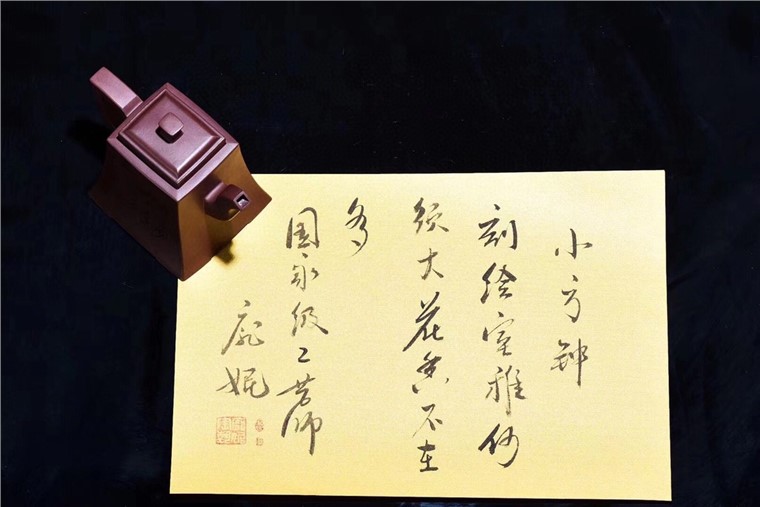 小方钟
刻绘室雅何
须大花香不在
多
国家级工艺师